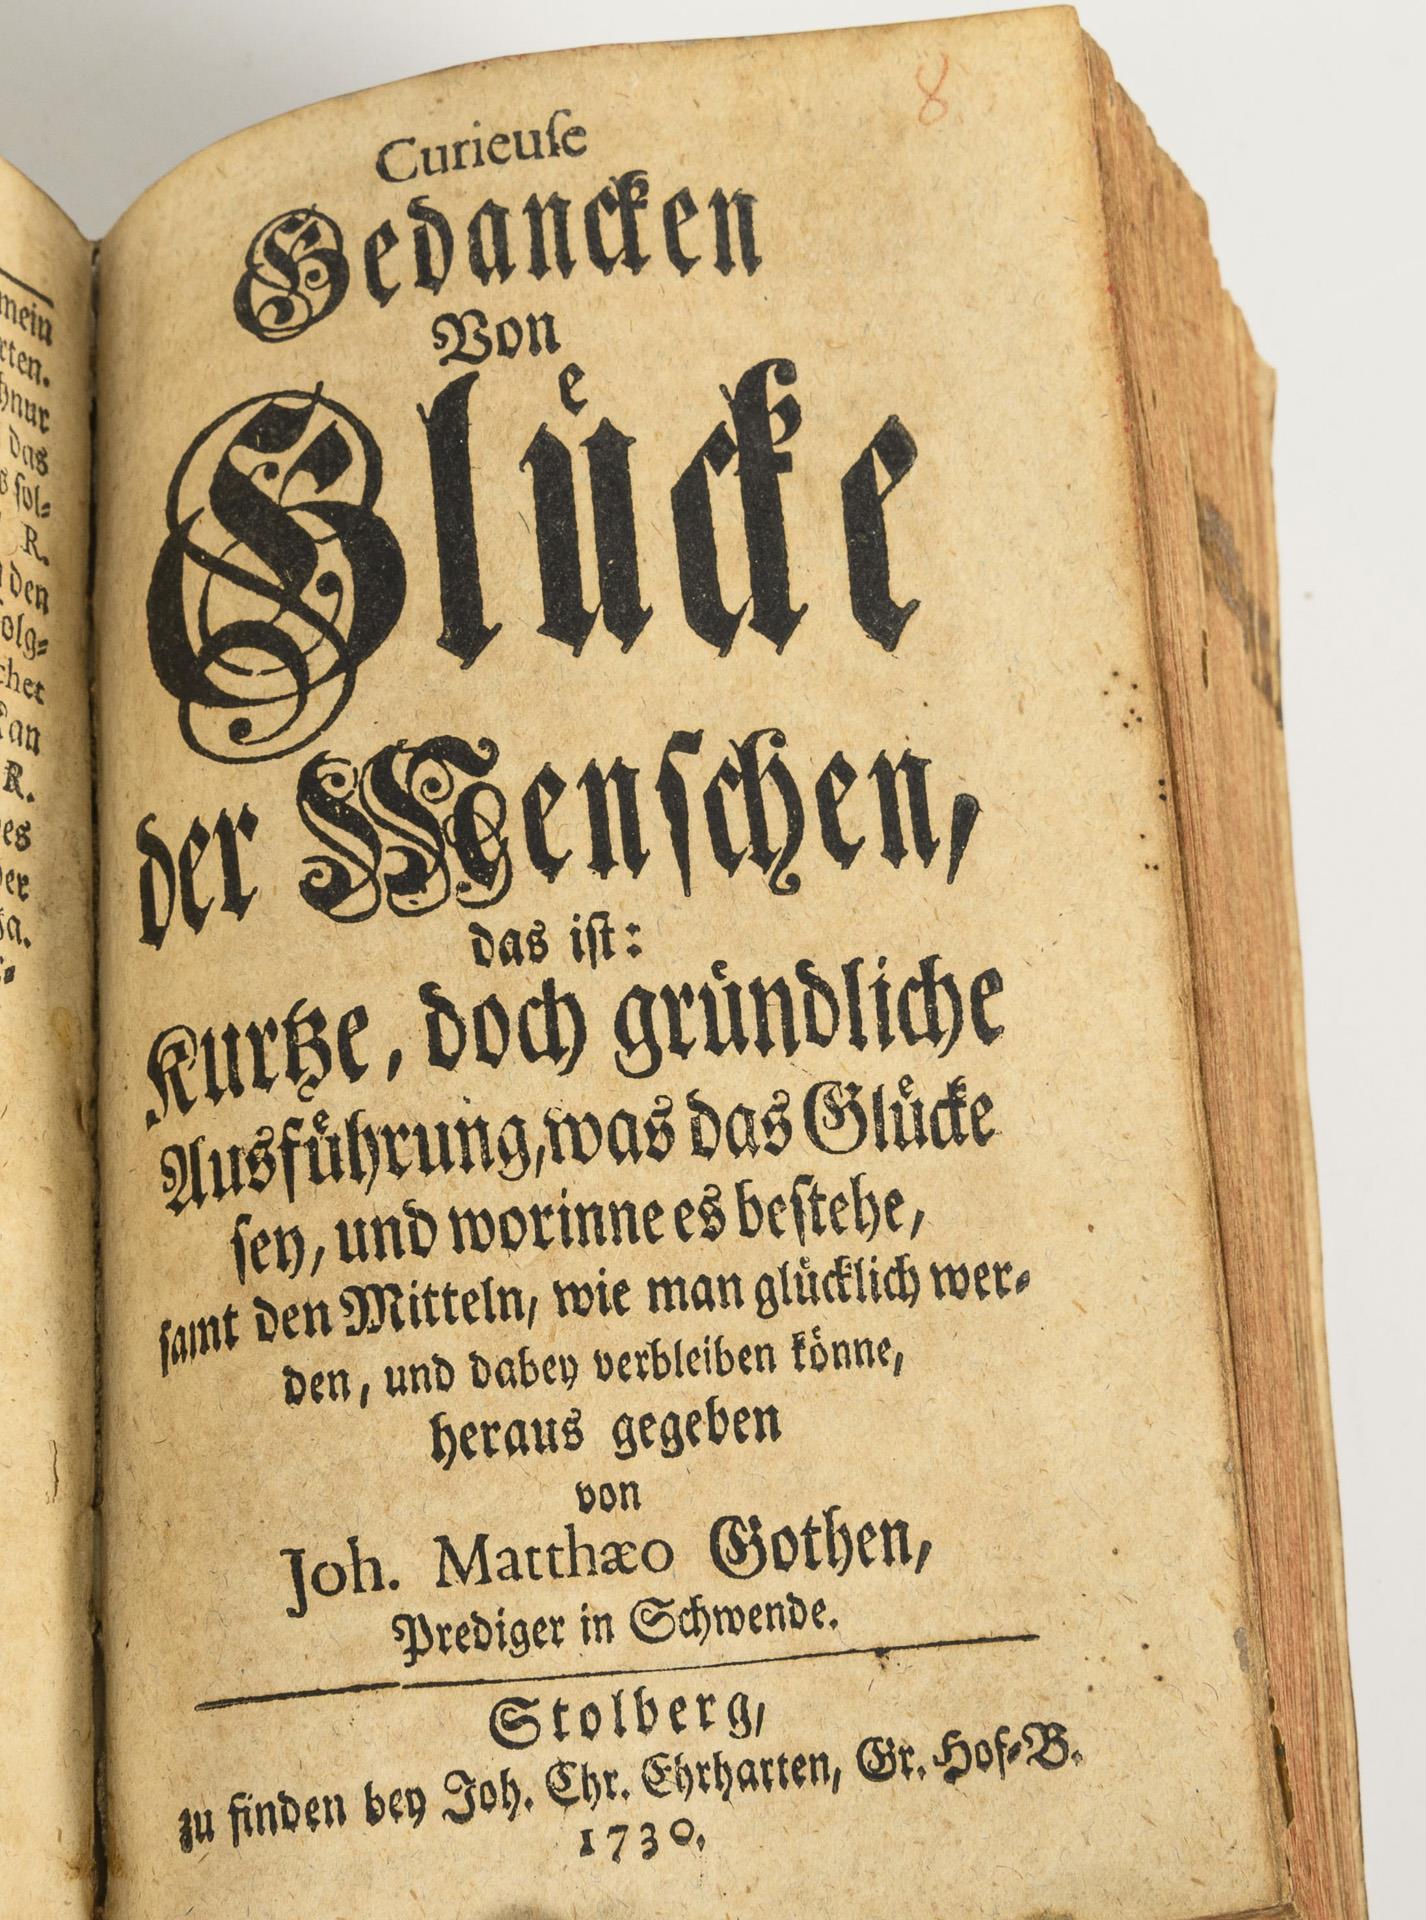 8
Curieuſe
Gedancken
Von
Gluͤcke
der Menſchen,
das iſt:
Kurtze, doch gruͤndliche
Ausfuͤhrung, was das Gluͤcke
ſey, und worinne es beſtehe,
ſamt den Mitteln, wie man gluͤcklich wer⸗
den, und dabey verbleiben koͤnne,
heraus gegeben
von
Joh. Matthæo Gothen,
Prediger in Schwende.
Stolberg,
zu finden bey Joh. Chr. Ehrharten, Gr. Hof⸗B.
1730.
mein
rten.
hnur
das
ſol⸗
R.
den
olg⸗
chet
kan
R.
es
er